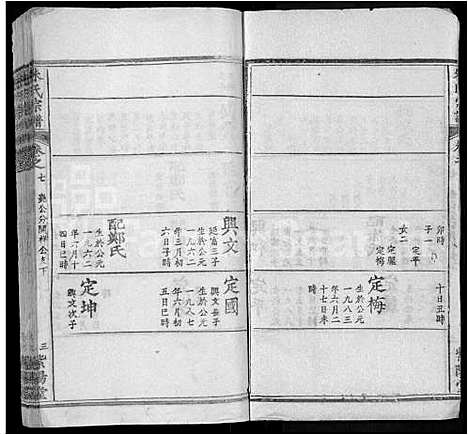 卯時
子一
定平
女二
定麗
定梅
定梅
生於公元
一九八三
年六月二
十七日未
十日丑時
興文
延富三子
生於公元
一九六二
年三月初
六日子時
配鄭氏
生於公元
一九六二
年六月十
四日巳時
定國
興文長子
生於公元
一九八七
年六月初
五日巳時
定坤
興文次子
朱氏宗譜
七
三
紫陽堂